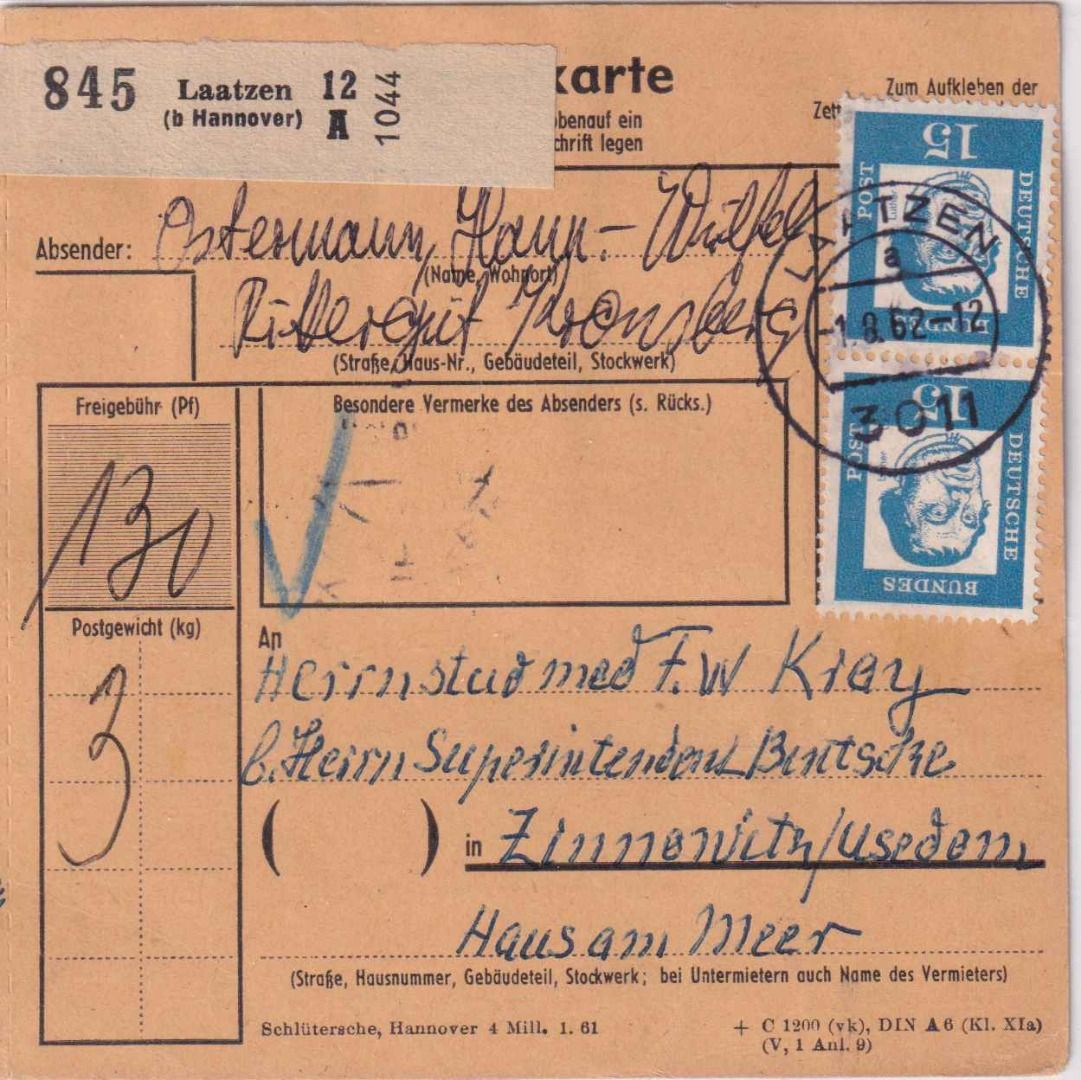 845 Laatzen 12
(b Hannover) A 1044
karte
obenauf ein
chrift legen
Zum Aufkleben der
Zett
15
POST
DEUTSCHE
BUNDES
15
POST
DEUTSCHE
BUNDES
LAATZEN
a
-1.8.62-12
3011
Absender: Ostermann,
(Name, Wohnort)
Rittergut Kronsberg
(Straße, Haus-Nr., Gebäudeteil, Stockwerk)
Freigebühr (Pf)
130
Besondere Vermerke des Absenders (s. Rücks.)
Postgewicht (kg)
3
An
Herrn stud med F. W Kray
b. Herrn Superintendent
( ) in Zinnowitz/Usedom,
Haus am Meer
(Straße, Hausnummer, Gebäudeteil, Stockwerk; bei Untermietern auch Name des Vermieters)
Schlütersche, Hannover 4 Mill. 1. 61
+ C 1200 (vk), DIN A 6 (Kl. XIa)
(V, 1 Anl. 9)